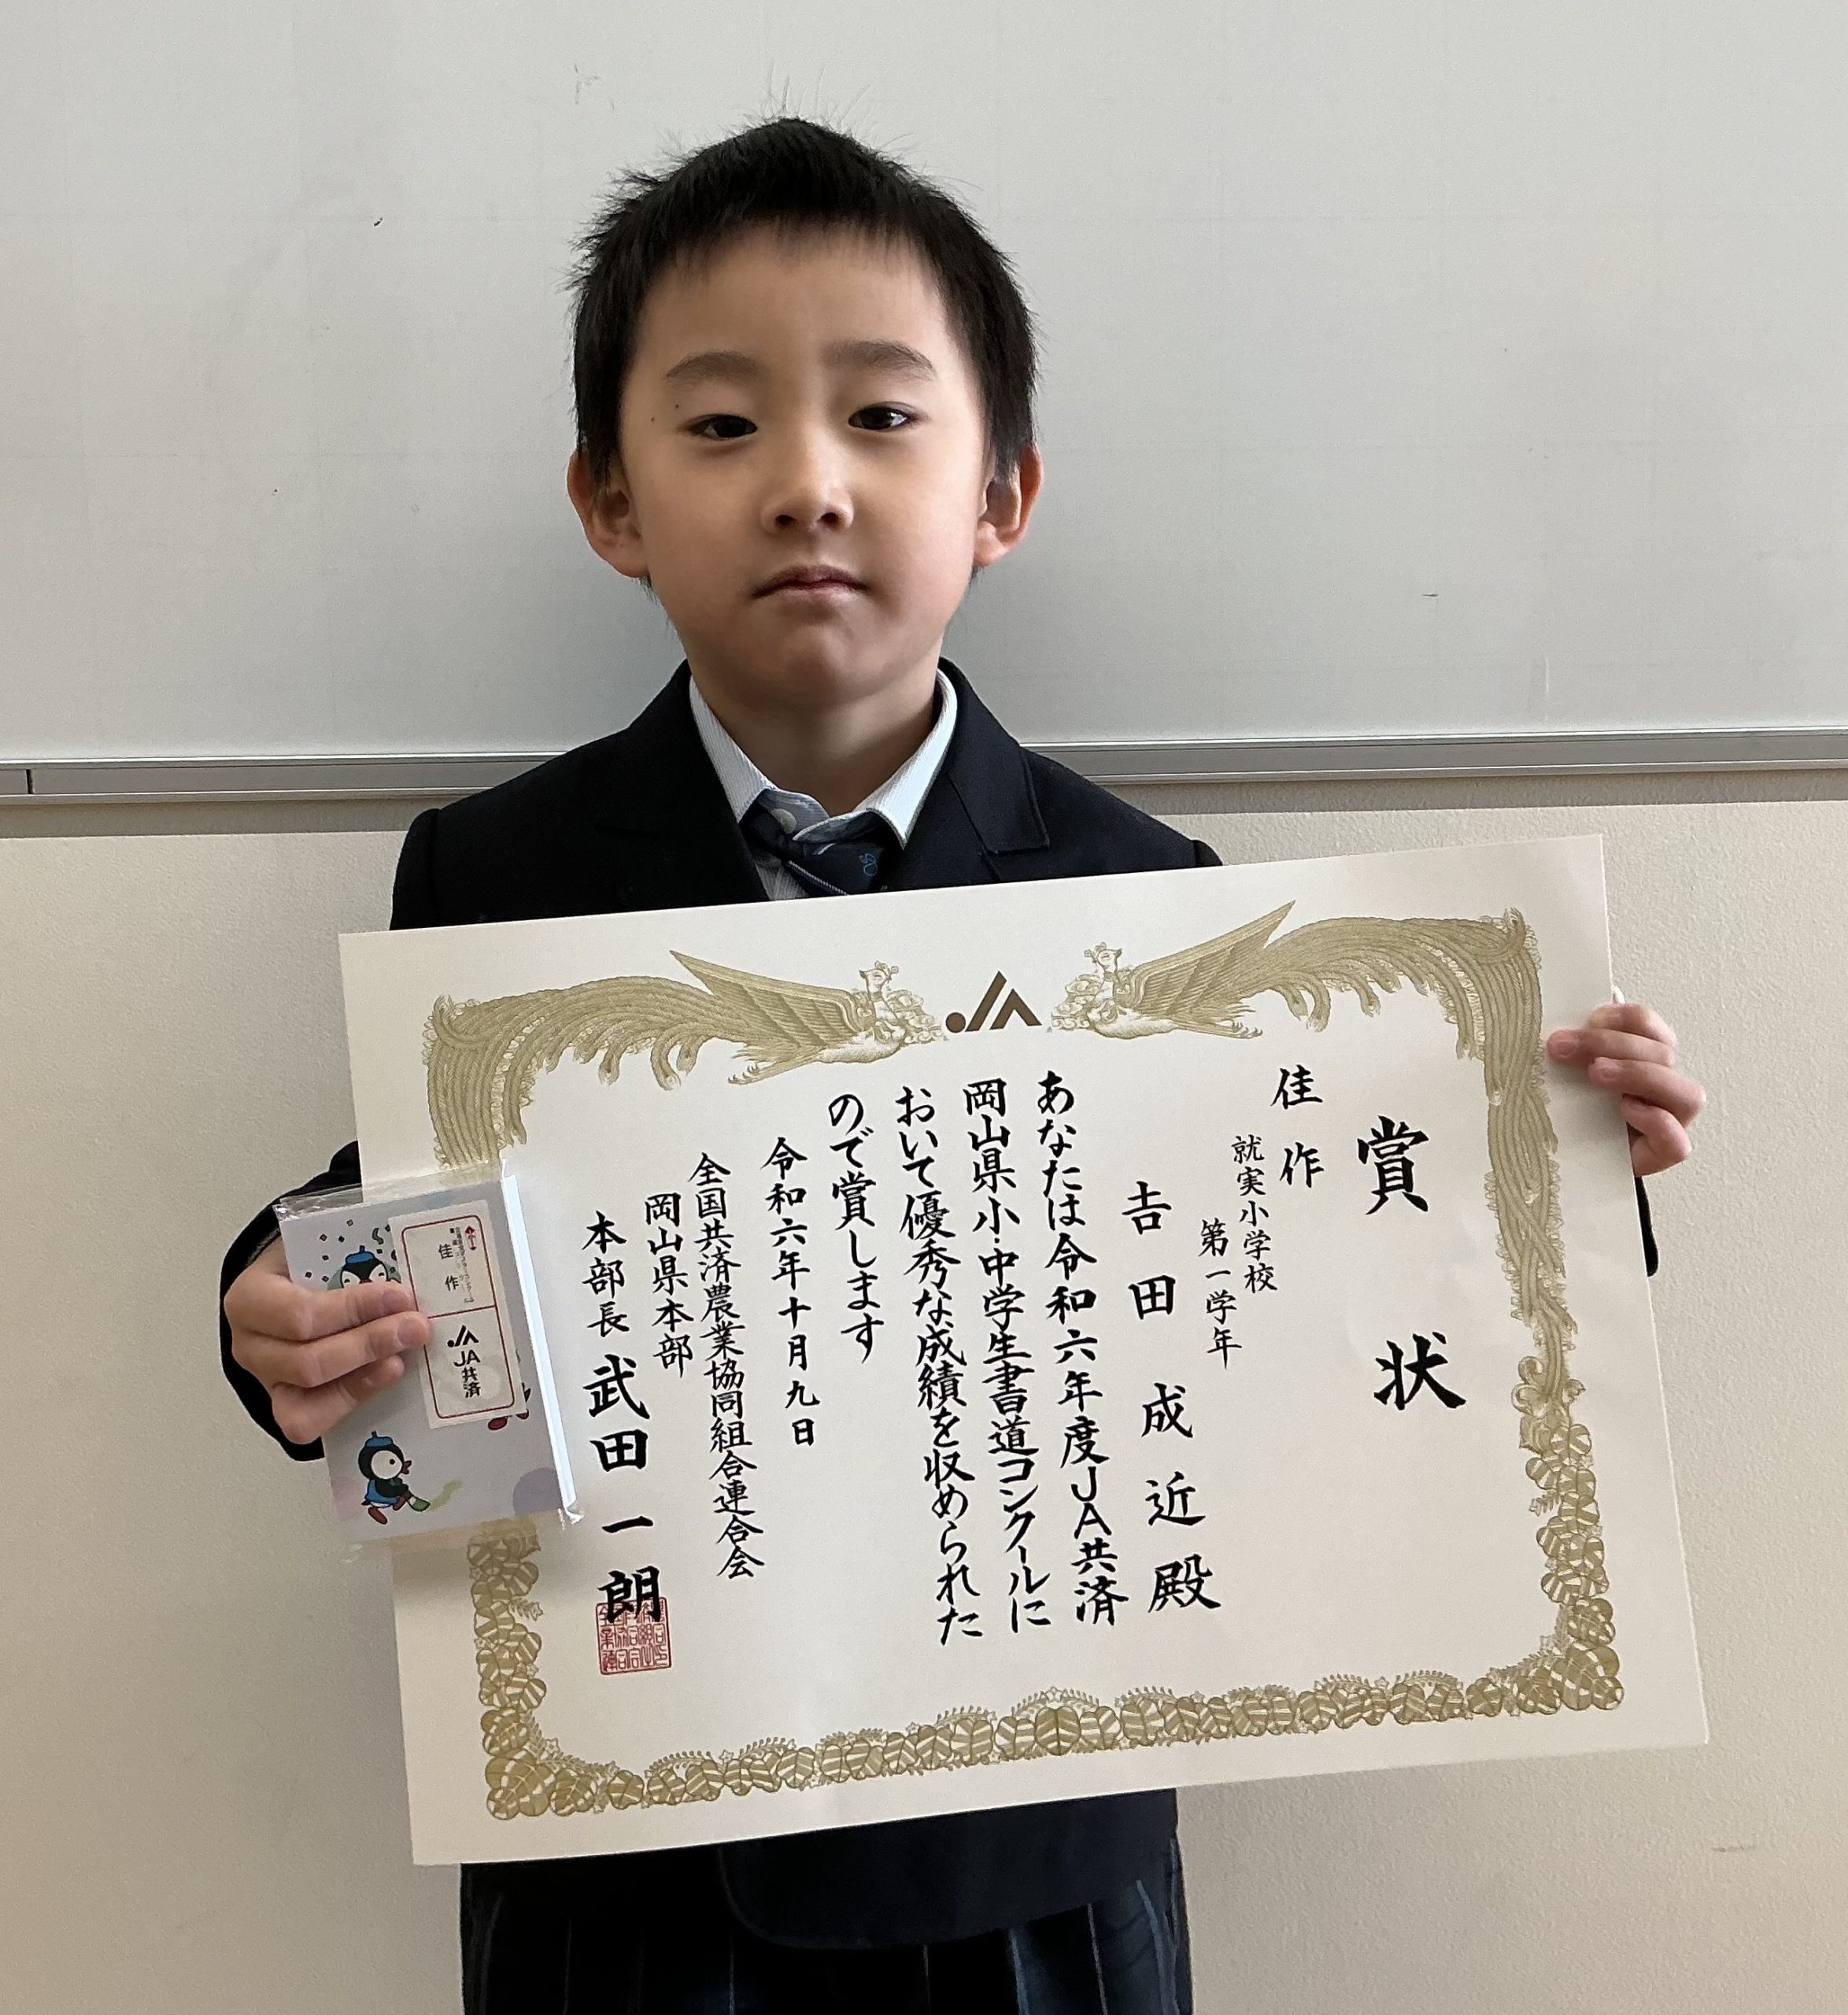 賞状
佳作
就実小学校
第一学年
吉田成近殿
あなたは令和六年度JA共済
岡山県小・中学生書道コンクールに
おいて優秀な成績を収められた
ので賞します
令和六年十月九日
全国共済農業協同組合連合会
岡山県本部
本部長 武田一朗
佳作
JA共済